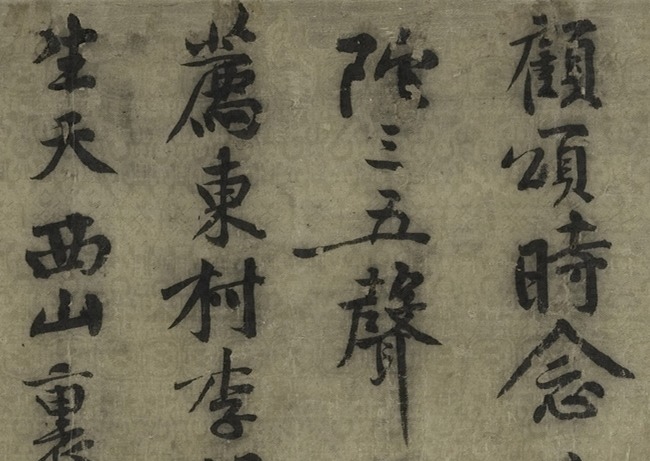 顧頌時念
陀三五聲
薦東村李
生天西山裏